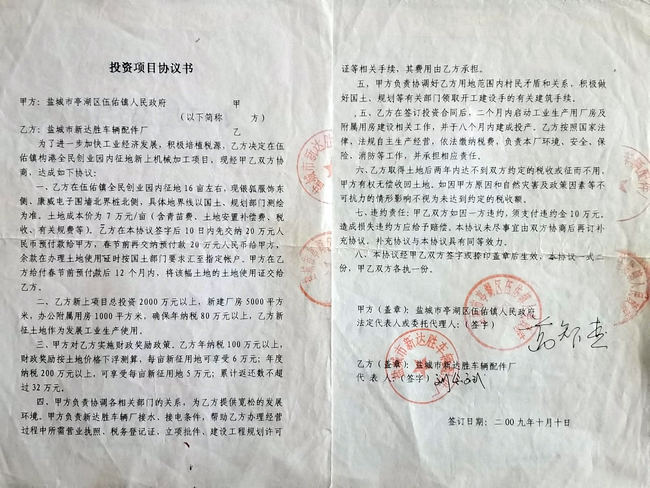 投资项目协议书
甲方：盐城市亭湖区伍佑镇人民政府 甲
（以下简称 方）
乙方：盐城市新达胜车辆配件厂 乙
为了进一步加快工业经济发展，积极培植税源，乙方决定在伍
佑镇构港全民创业园内征地新上机械加工项目，现经甲乙双方协
商，达成如下协议：
一、乙方在伍佑镇全民创业园内征地16亩左右，现银弧服饰东
侧、康威电子围墙北界桩北侧，具体地界线以国土、规划部门测绘
为准。土地成本价为7万元/亩（含青苗费、土地安置补偿费、税
收、有关规费等）。乙方在本协议签字后10日内先交纳20万元人
民币预付款给甲方，春节前再交纳预付款20万元人民币给甲方，
余款在办理土地使用证时按国土部门要求汇至指定帐户。甲方在乙
方给付春节前预付款后12个月内，将该幅土地的土地使用证交给
乙方。
二、乙方新上项目总投资2000万元以上，新建厂房5000平方
米，办公附属用房1000平方米，确保年纳税80万元以上，乙方新
征土地作为发展工业生产使用。
三、甲方对乙方实施财政奖励政策。乙方年纳税100万元以上，
财政奖励按土地价格下浮测算，每亩新征用地可享受6万元；年度
纳税200万元以上，可享受每亩新征用地5万元；累计返还数不超
过32万元。
四、甲方负责协调各相关部门的关系，为乙方提供宽松的发展
环境。甲方负责新达胜车辆厂接水、接电条件，帮助乙方办理经营
过程中所需营业执照、税务登记证、立项批件、建设工程规划许可
证等相关手续，其费用由乙方承担。
五、甲方负责协调好乙方用地范围内村民矛盾和关系，积极做
好国土、规划等有关部门领取开工建设手的有关建筑手续。
五、乙方在签订投资合同后，二个月内启动工业生产用厂房及
附属用房建设相关工作，并于八个月内建成投产。乙方按照国家法
律，法规自主生产经营，依法缴纳税费，负责本厂环境、安全、保
险、消防等工作，并承担相应责任。
六、乙方取得土地后两年内达不到双方约定的税收或征而不用，
甲方有权无偿收回土地。如因甲方原因和自然灾害及政策因素等不
可抗力的情形影响不视为未达到约定的税收额。
七、违约责任：甲乙双方如因一方违约，须支付违约金10万元，
造成损失违约方应给予赔偿。本协议未尽事宜由双方协商后再订补
充协议，补充协议与本协议具有同等效力。
八、本协议经甲乙双方签字或捺印盖章后生效，本协议一式二
份，甲乙双方各执一份。
甲方（盖章）：盐城市亭湖区伍佑镇人民政府
法定代表人或委托代理人：（签字）
乙方（盖章）：盐城市新达胜车辆配件厂
代 表 人：（签字）
签订日期：二00九年十月十日